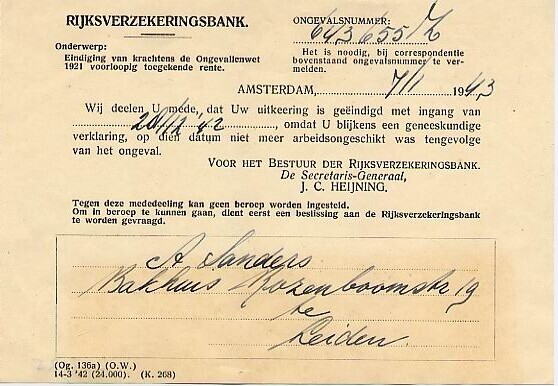 RIJKSVERZEKERINGSBANK.
ONGEVALSNUMMER:
643655 Z
Onderwerp:
Eindiging van krachtens de Ongevallenwet
1921 voorloopig toegekende rente.
Het is noodig, bij correspondentie
bovenstaand ongevalsnummer te ver-
melden.
AMSTERDAM, 7/1 1943
Wij deelen U mede, dat Uw uitkeering is geëindigd met ingang van
20/12 '42, omdat U blijkens een geneeskundige
verklaring, op dien datum niet meer arbeidsongeschikt was tengevolge
van het ongeval.
VOOR HET BESTUUR DER RIJKSVERZEKERINGSBANK.
De Secretaris-Generaal,
J. C. HEIJNING.
Tegen deze mededeeling kan geen beroep worden ingesteld.
Om in beroep te kunnen gaan, dient eerst een beslissing aan de Rijksverzekeringsbank
te worden gevraagd.
A Sanders
Bakhuis Rozenboomstr 19
te
Leiden.
(Og. 136a) (O.W.)
14-3 '42 (24.000). (K. 268)